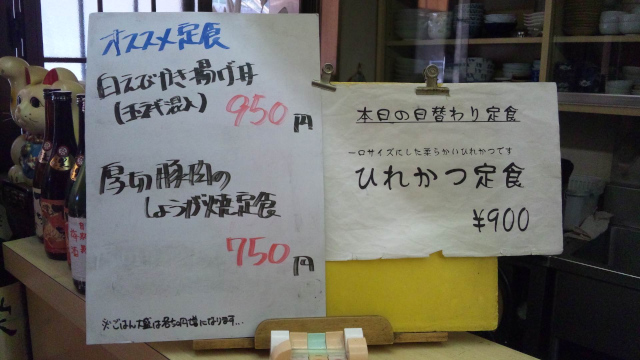 オススメ定食
白えびかき揚げ丼
(玉ネギ混入)
950円
厚切豚肉の
しょうが焼定食
750円
※ごはん大盛は各50円増になります...
本日の日替わり定食
一口サイズにした柔らかいひれかつです
ひれかつ定食
¥900